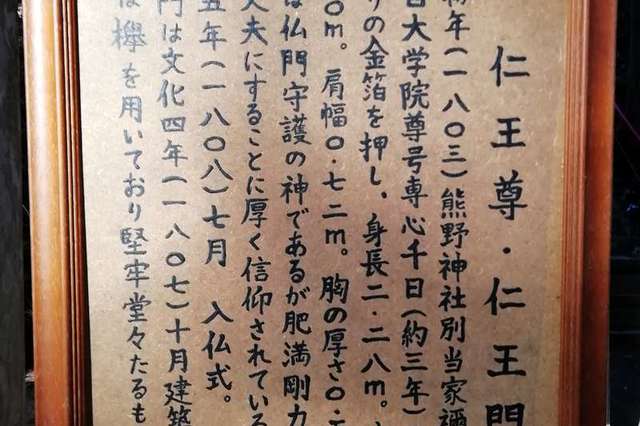 仁王尊・仁王門
年(一八〇三)熊野神社別当家禰
大学院尊号専心千日(約三年)
の金箔を押し、身長二・二八m。
m。肩幅〇・七二m。胸の厚さ〇・
仏門守護の神であるが肥満剛力
夫にすることに厚く信仰されている
五年(一八〇八)七月 入仏式。
門は文化四年(一八〇七)十月建築
は欅を用いており堅牢堂々たるも